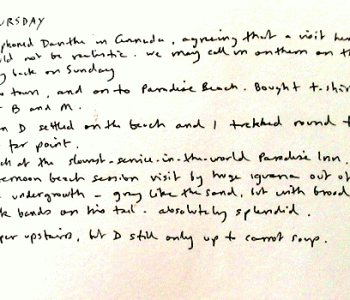 URSDAY
phoned Danthe in Grenada, agreeing that a visit her
ld not be realistic. We may call in on them on th
y back on Sunday
town, and on to Paradise Beach. Bought t-shir
B and M.
n D settled on the beach and I trekked round t
far point.
ch at the slowest-service-in-the-world Paradise Inn.
ernoon beach session visit by huge iguana out of
undergrowth - grey like the sand, but with broad
k bands on his tail. absolutely splendid.
per upstairs, but D still only up to carrot soup.